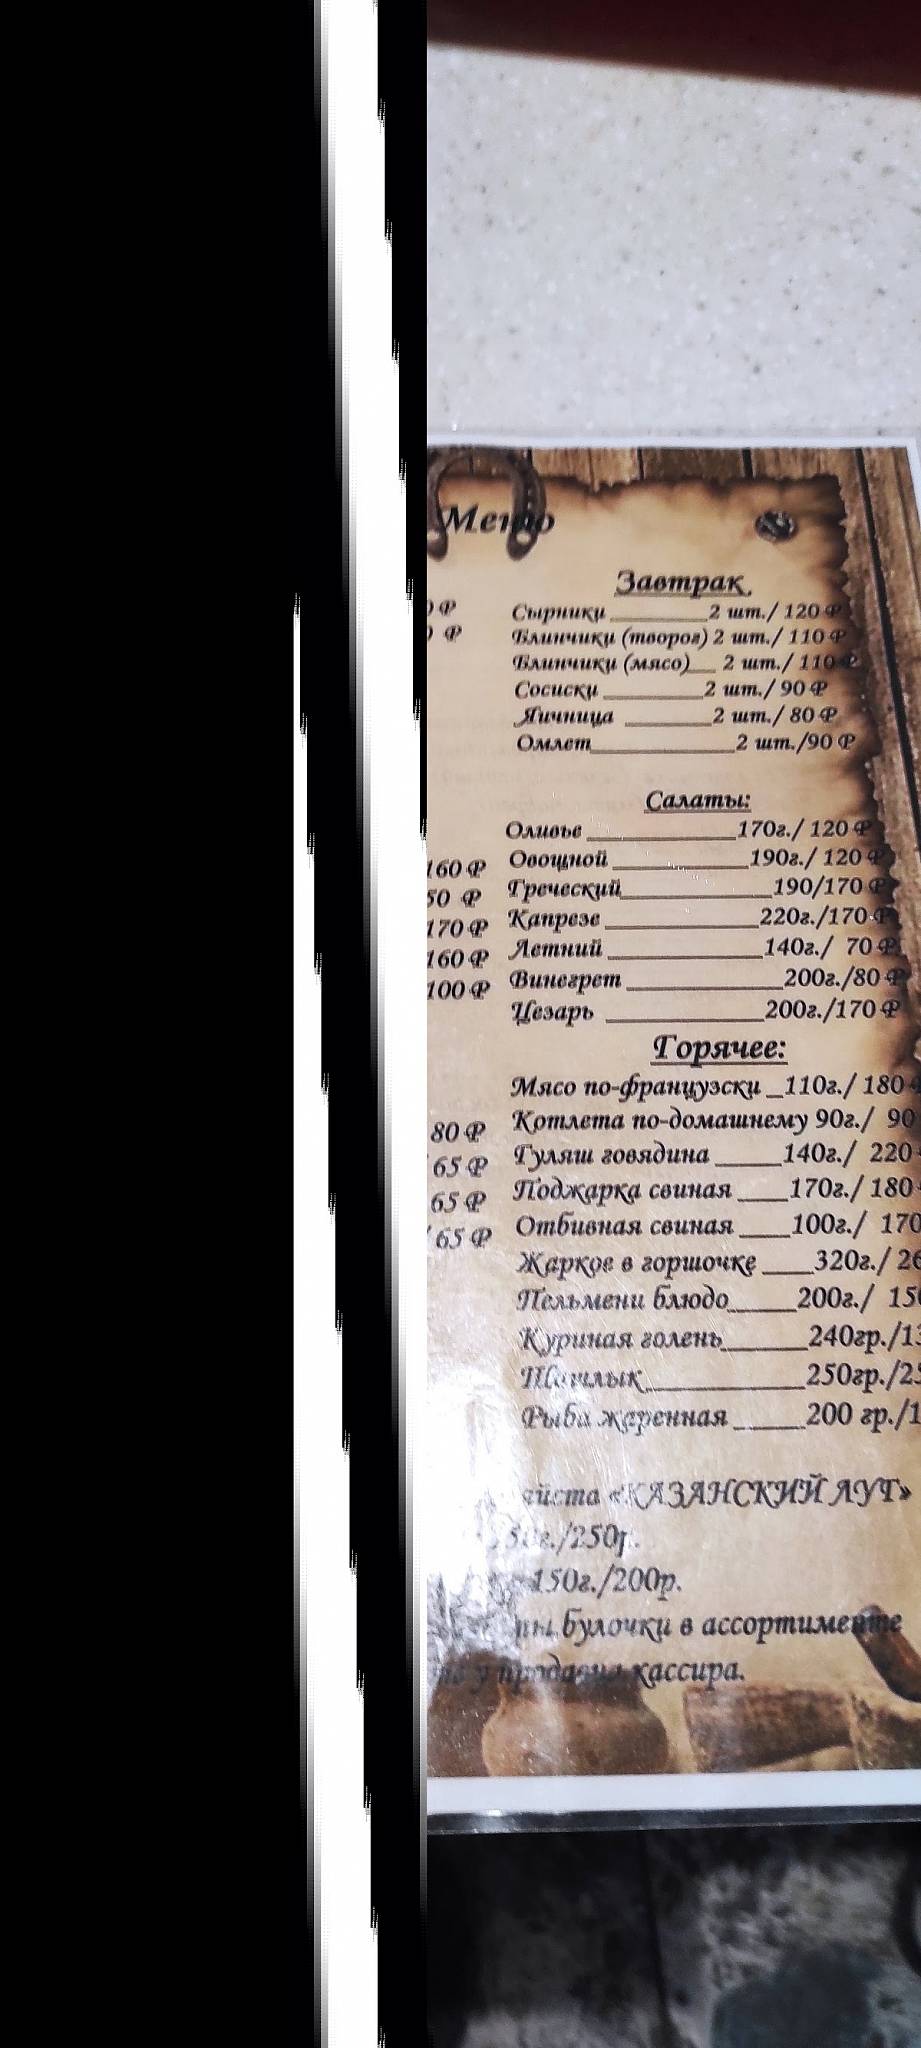 Меню
Завтрак
Сырники 2 шт./ 120 ₽
Блинчики (творог) 2 шт./ 110 ₽
Блинчики (мясо) 2 шт./ 110 ₽
Сосиски 2 шт./ 90 ₽
Яичница 2 шт./ 80 ₽
Омлет 2 шт./90 ₽
Салаты:
Оливье 170г./ 120 ₽
160 ₽ Овощной 190г./ 120 ₽
50 ₽ Греческий 190/170 ₽
170 ₽ Капрезе 220г./170 ₽
160 ₽ Летний 140г./ 70 ₽
100 ₽ Винегрет 200г./80 ₽
Цезарь 200г./170 ₽
Горячее:
Мясо по-французски 110г./ 180
80 ₽ Котлета по-домашнему 90г./ 90
65 ₽ Гуляш говядина 140г./ 220
65 ₽ Поджарка свиная 170г./ 180
65 ₽ Отбивная свиная 100г./ 170
Жаркое в горшочке 320г./
Пельмени блюдо 200г./
Куриная голень 240гр./
Шашлык 250гр./
Рыба жаренная 200 гр./
«КАЗАНСКИЙ АУТ»
/250р.
150г./200р.
булочки в ассортименте
у продавца кассира.